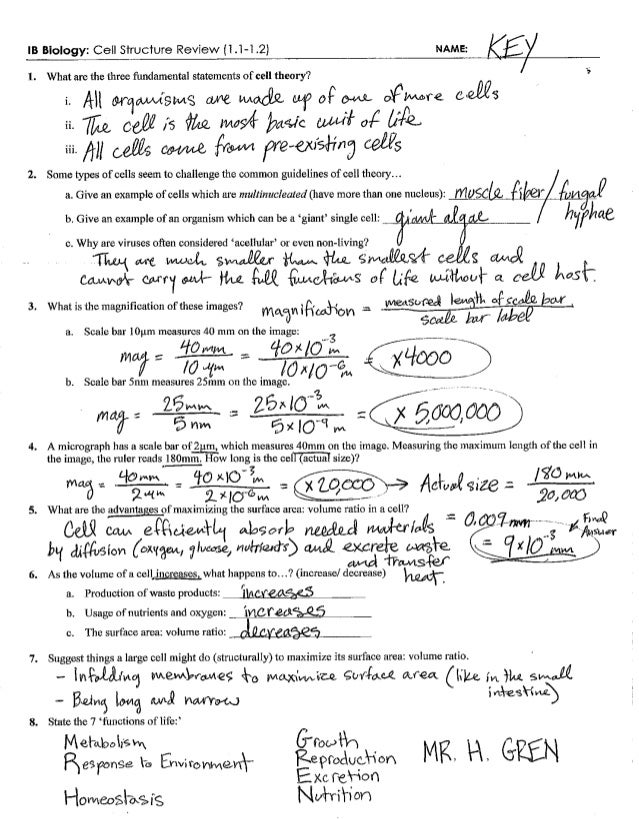 IB Biology: Cell Structure Review (1.1-1.2) NAME: KEY
1. What are the three fundamental statements of cell theory?
i. All organisms are made up of one of more cells
ii. The cell is the most basic unit of life
iii. All cells come from pre-existing cells
2. Some types of cells seem to challenge the common guidelines of cell theory…
a. Give an example of cells which are multinucleated (have more than one nucleus): muscle fiber / fungal hyphae
b. Give an example of an organism which can be a 'giant' single cell: giant algae
c. Why are viruses often considered 'acellular' or even non-living?
They are much smaller than the smallest cells and
cannot carry out the full functions of life without a cell host.
3. What is the magnification of these images? magnification = measured length of scale bar / scale bar label
a. Scale bar 10μm measures 40 mm on the image:
mag = 40mm / 10 μm = 40×10⁻³ m / 10×10⁻⁶ m = ×4000
b. Scale bar 5nm measures 25mm on the image.
mag = 25mm / 5 nm = 25×10⁻³ m / 5×10⁻⁹ m = × 5,000,000
4. A micrograph has a scale bar of 2μm, which measures 40mm on the image. Measuring the maximum length of the cell in
the image, the ruler reads 180mm. How long is the cell (actual size)?
mag = 40mm / 2μm = 40×10⁻³ m / 2×10⁻⁶ m = ×20,000 → Actual size = 180 mm / 20,000
= 0.009 mm
= 9×10⁻³ mm Final Answer
5. What are the advantages of maximizing the surface area: volume ratio in a cell?
Cell can efficiently absorb needed materials
by diffusion (oxygen, glucose, nutrients) and excrete waste
and transfer
heat.
6. As the volume of a cell increases, what happens to…? (increase/ decrease)
a. Production of waste products: increases
b. Usage of nutrients and oxygen: increases
c. The surface area: volume ratio: decreases
7. Suggest things a large cell might do (structurally) to maximize its surface area: volume ratio.
- Infolding membranes to maximize surface area (like in the small
intestine)
- Being long and narrow
8. State the 7 'functions of life:'
Metabolism
Response to Environment
Homeostasis
Growth
Reproduction
Excretion
Nutrition
MR. H. GREN